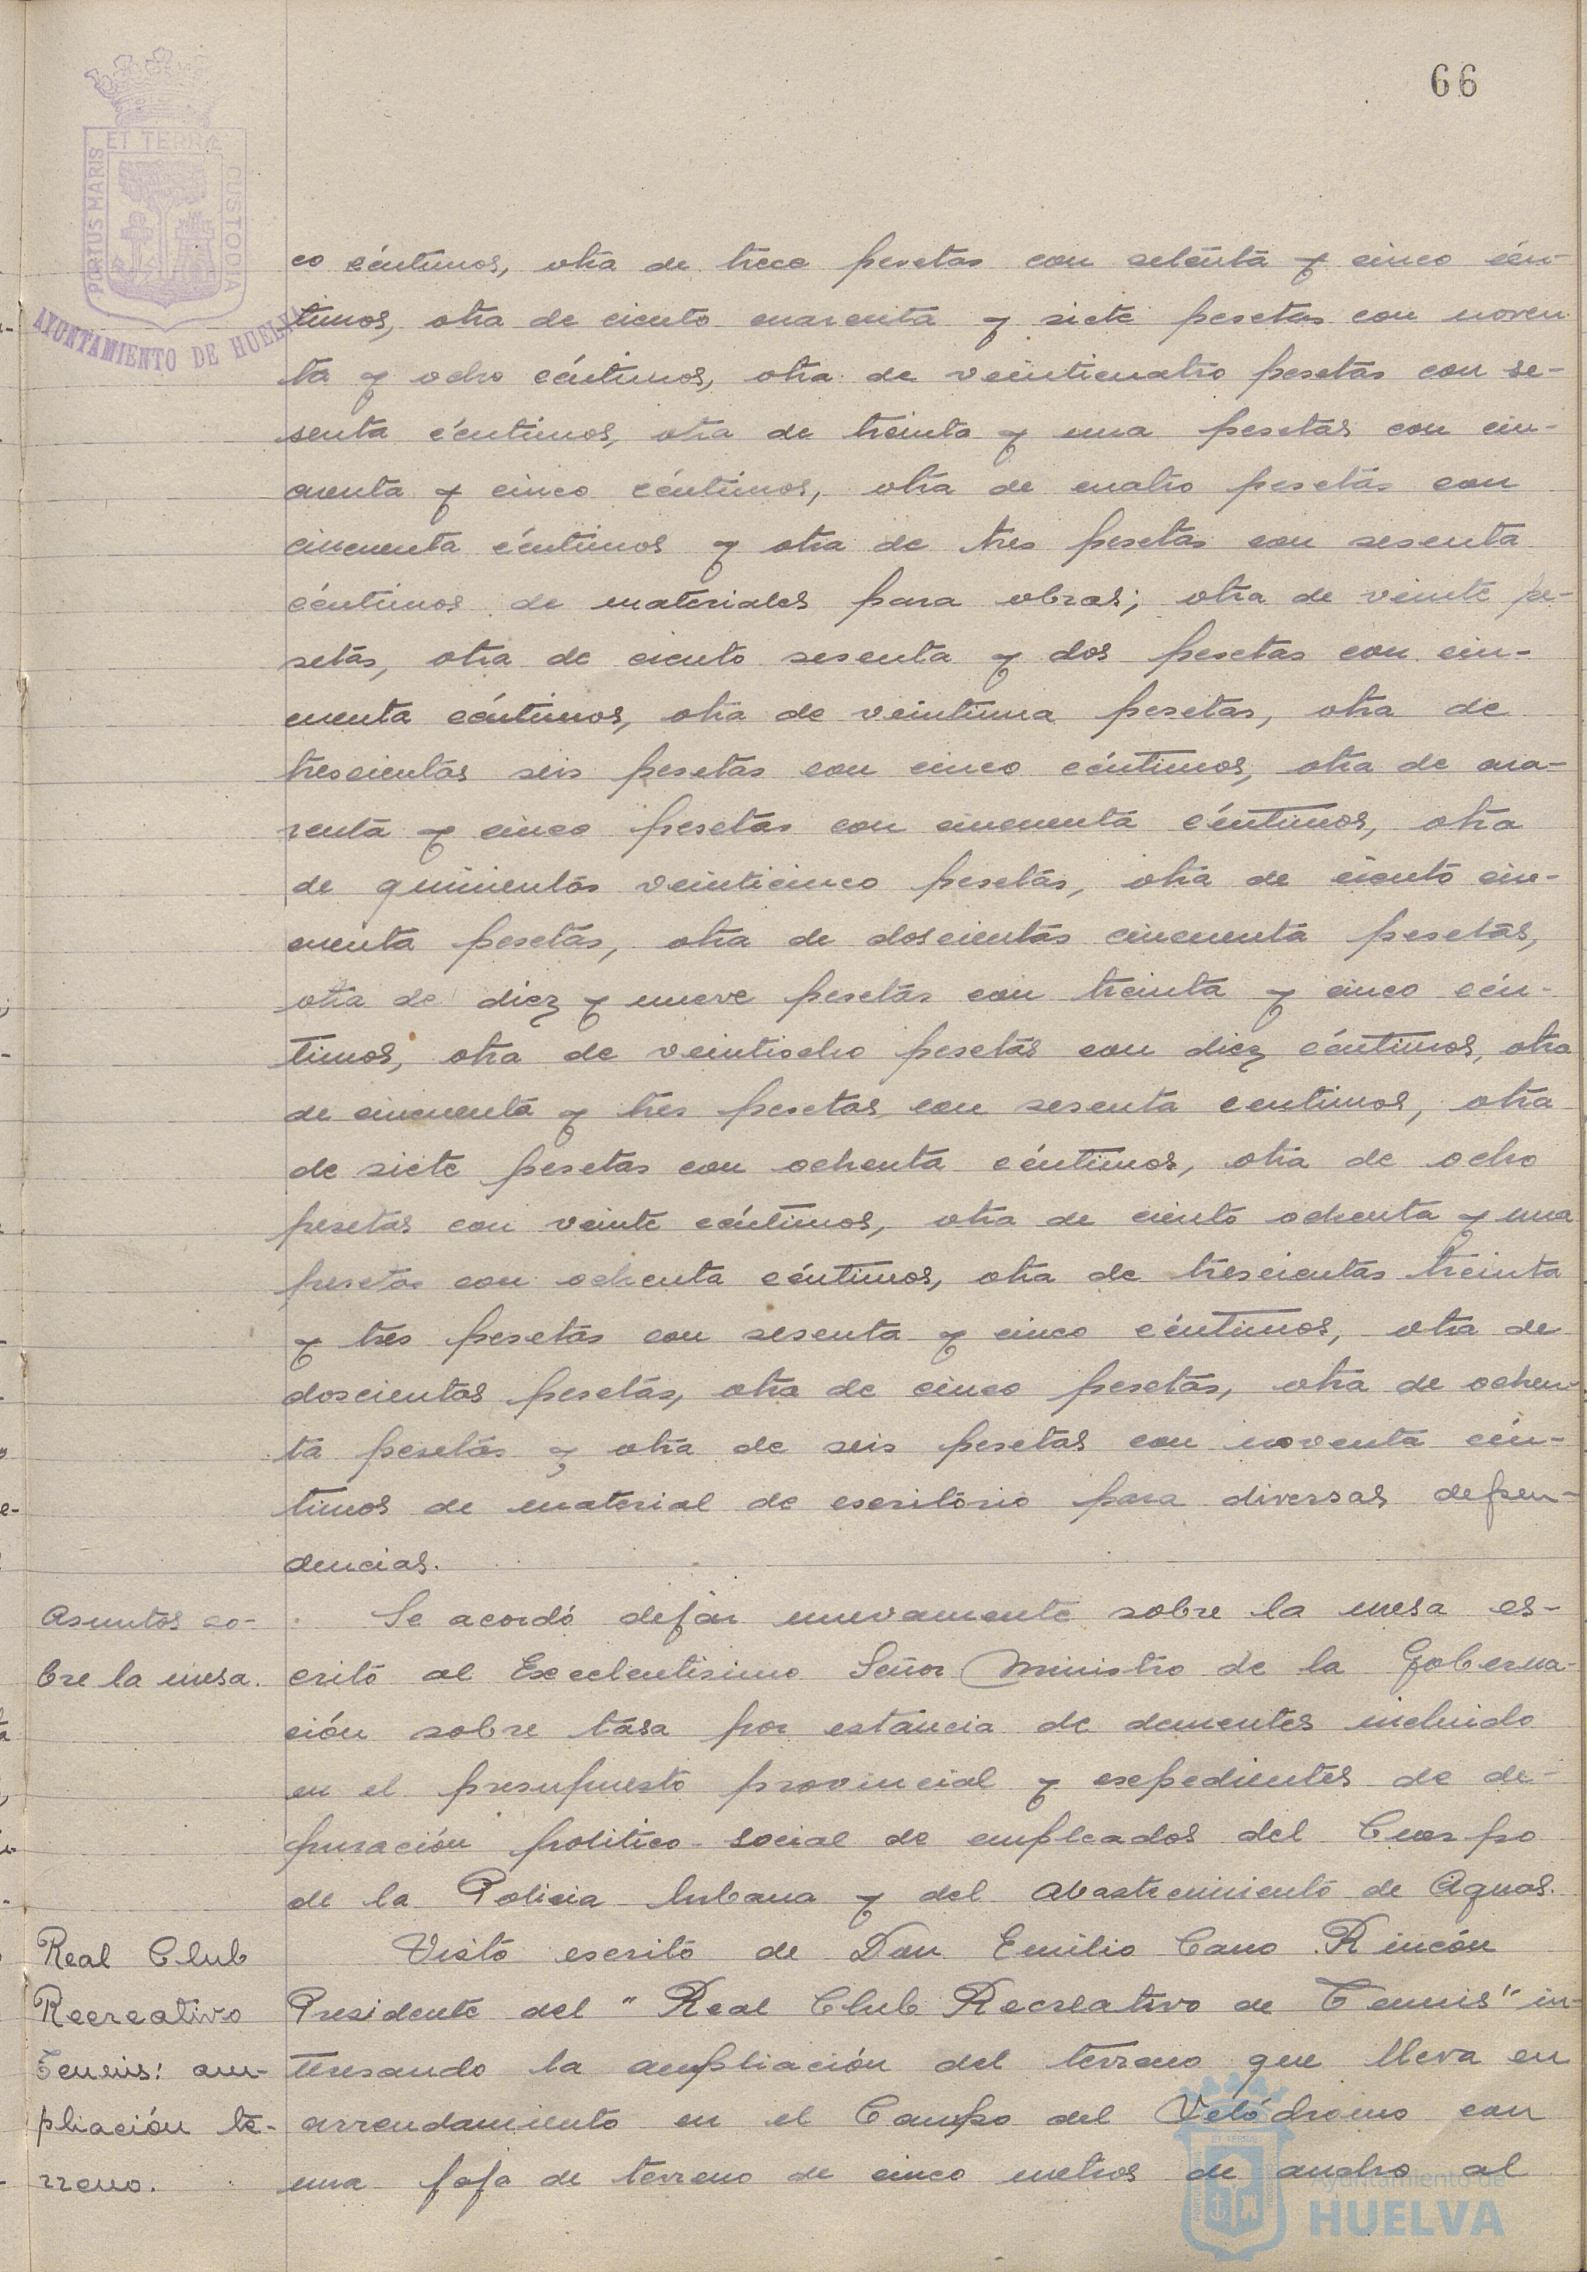 66
PORTUS MARIS
ET TERRÆ
CUSTODIA
AYUNTAMIENTO DE HUELVA
co céntimos, otra de trece pesetas con setenta y cinco cén-
timos, otra de ciento cuarenta y siete pesetas con noven
ta y ocho céntimos, otra de veinticuatro pesetas con se-
senta céntimos, otra de treinta y una pesetas con cin-
cuenta y cinco céntimos, otra de cuatro pesetas con
cincuenta céntimos y otra de tres pesetas con sesenta
céntimos de materiales para obras; otra de veinte pe-
setas, otra de ciento sesenta y dos pesetas con cin-
cuenta céntimos, otra de veintiuna pesetas, otra de
trescientas seis pesetas con cinco céntimos, otra de cua-
renta y cinco pesetas con cincuenta céntimos, otra
de quinientas veinticinco pesetas, otra de ciento cin-
cuenta pesetas, otra de doscientas cincuenta pesetas,
otra de diez y nueve pesetas con treinta y cinco cén-
timos, otra de veintiocho pesetas con diez céntimos, otra
de cincuenta y tres pesetas con sesenta centimos, otra
de siete pesetas con ochenta céntimos, otra de ocho
pesetas con veinte céntimos, otra de ciento ochenta y una
pesetas con ochenta céntimos, otra de trescientas treinta
y tres pesetas con sesenta y cinco céntimos, otra de
doscientas pesetas, otra de cinco pesetas, otra de ochen-
ta pesetas y otra de seis pesetas con noventa cén-
timos de material de escritorio para diversas depen-
dencias.
Asuntos so-
bre la mesa.
Se acordó dejar nuevamente sobre la mesa es-
crito al Excelentisimo Señor Ministro de la Goberna-
ción sobre tasa por estancia de dementes incluido
en el presupuesto provincial y expedientes de de-
puración politico-social de empleados del Cuerpo
de la Policia Urbana y del Abastecimiento de Aguas.
Real Club
Recreativo
Tennis: am-
pliación te-
rreno.
Visto escrito de Don Emilio Cano Rincón
Presidente del "Real Club Recreativo de Tennis" in-
teresando la ampliación del terreno que lleva en
arrendamiento en el Campo del Velódromo con
una faja de terreno de cinco metros de ancho al
Ayuntamiento de
HUELVA